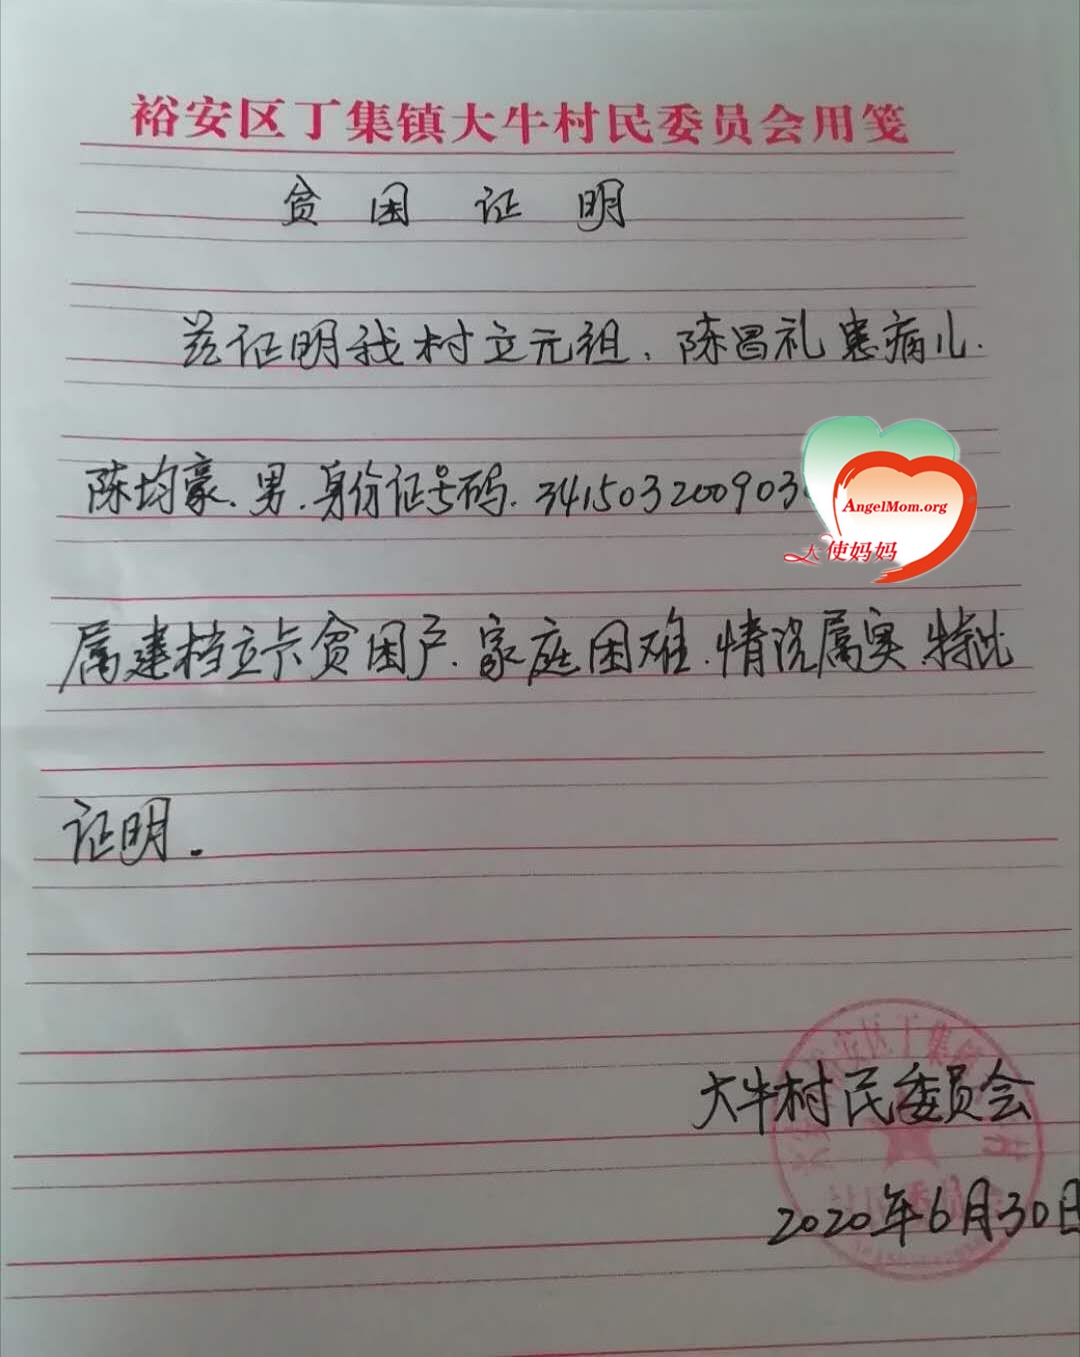 裕安区丁集镇大牛村民委员会用笺
贫困证明
兹证明我村立元组、陈昌礼患病儿.
陈均豪、男、身份证号码.3415032009030
AngelMom.org
天使妈妈
属建档立卡贫困户、家庭困难、情况属实、特此
证明.
大牛村民委员会
2020年6月30日
安区丁集